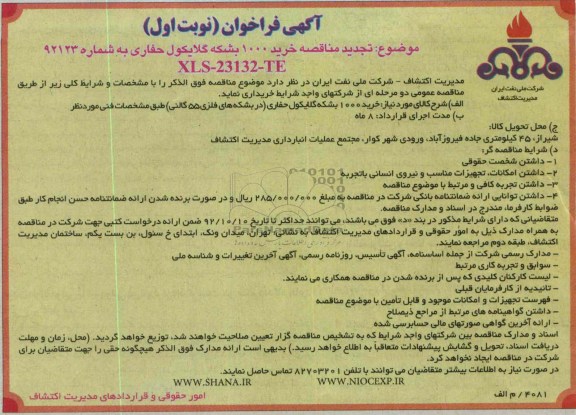 آگهی فراخوان (نوبت اول)
موضوع: تجدید مناقصه خرید ۱۰۰۰ بشکه گلایکول حفاری به شماره ۹۲۱۲۳
XLS-23132-TE
شرکت ملی نفت ایران
مدیریت اکتشاف
مدیریت اکتشاف - شرکت ملی نفت ایران در نظر دارد موضوع مناقصه فوق الذکر را با مشخصات و شرایط کلی زیر از طریق
مناقصه عمومی دو مرحله ای از شرکتهای واجد شرایط خریداری نماید.
الف) شرح کالای مورد نیاز: خرید ۱۰۰۰ بشکه گلایکول حفاری (در بشکه های فلزی ۵۵ گالنی) طبق مشخصات فنی مورد نظر
ب) مدت اجرای قرارداد: ۸ ماه
ج) محل تحویل کالا:
شیراز، ۴۵ کیلومتری جاده فیروزآباد، ورودی شهر کوار، مجتمع عملیات انبارداری مدیریت اکتشاف
د) شرایط مناقصه گر:
۱- داشتن شخصیت حقوقی
۲- داشتن امکانات، تجهیزات مناسب و نیروی انسانی باتجربه
۳- داشتن تجربه کافی و مرتبط با موضوع مناقصه
۴- داشتن توانایی ارائه ضمانتنامه بانکی شرکت در مناقصه به مبلغ ۲۸۵/۰۰۰/۰۰۰ ریال و در صورت برنده شدن ارائه ضمانتنامه حسن انجام کار طبق
ضوابط کارفرما، مندرج در اسناد و مدارک مناقصه.
متقاضیانی که دارای شرایط مذکور در بند «د» فوق می باشند، می توانند حداکثر تا تاریخ ۹۲/۱۰/۱۰ ضمن ارائه درخواست کتبی جهت شرکت در مناقصه
به همراه مدارک ذیل به امور حقوقی و قراردادهای مدیریت اکتشاف به نشانی: تهران، میدان ونک، ابتدای خ سئول، بن بست یکم، ساختمان مدیریت
اکتشاف، طبقه دوم مراجعه نمایند.
- مدارک رسمی شرکت از جمله اساسنامه، آگهی تأسیس، روزنامه رسمی، آگهی آخرین تغییرات و شناسه ملی
- سوابق و تجربه کاری مرتبط
- لیست کارکنان کلیدی که پس از برنده شدن در مناقصه همکاری می نمایند.
- تائیدیه از کارفرمایان قبلی
- فهرست تجهیزات و امکانات موجود و قابل تأمین با موضوع مناقصه
- داشتن گواهینامه های مرتبط از مراجع ذیصلاح
- ارائه آخرین گواهی صورتهای مالی حسابرسی شده
اسناد و مدارک مناقصه بین شرکتهای واجد شرایط که به تشخیص مناقصه گزار تعیین صلاحیت خواهند شد، توزیع خواهد گردید. (محل، زمان و مهلت
دریافت اسناد، تحویل و گشایش پیشنهادات متعاقباً به اطلاع خواهد رسید.) بدیهی است ارائه مدارک فوق الذکر هیچگونه حقی را جهت متقاضیان برای
شرکت در مناقصه ایجاد نخواهد کرد.
در صورت نیاز به اطلاعات بیشتر متقاضیان می توانند با تلفن ۸۲۷۰۳۲۰۱ تماس حاصل نمایند.
WWW.SHANA.IR WWW.NIOCEXP.IR
امور حقوقی و قراردادهای مدیریت اکتشاف
۴۰۸۱ / م الف